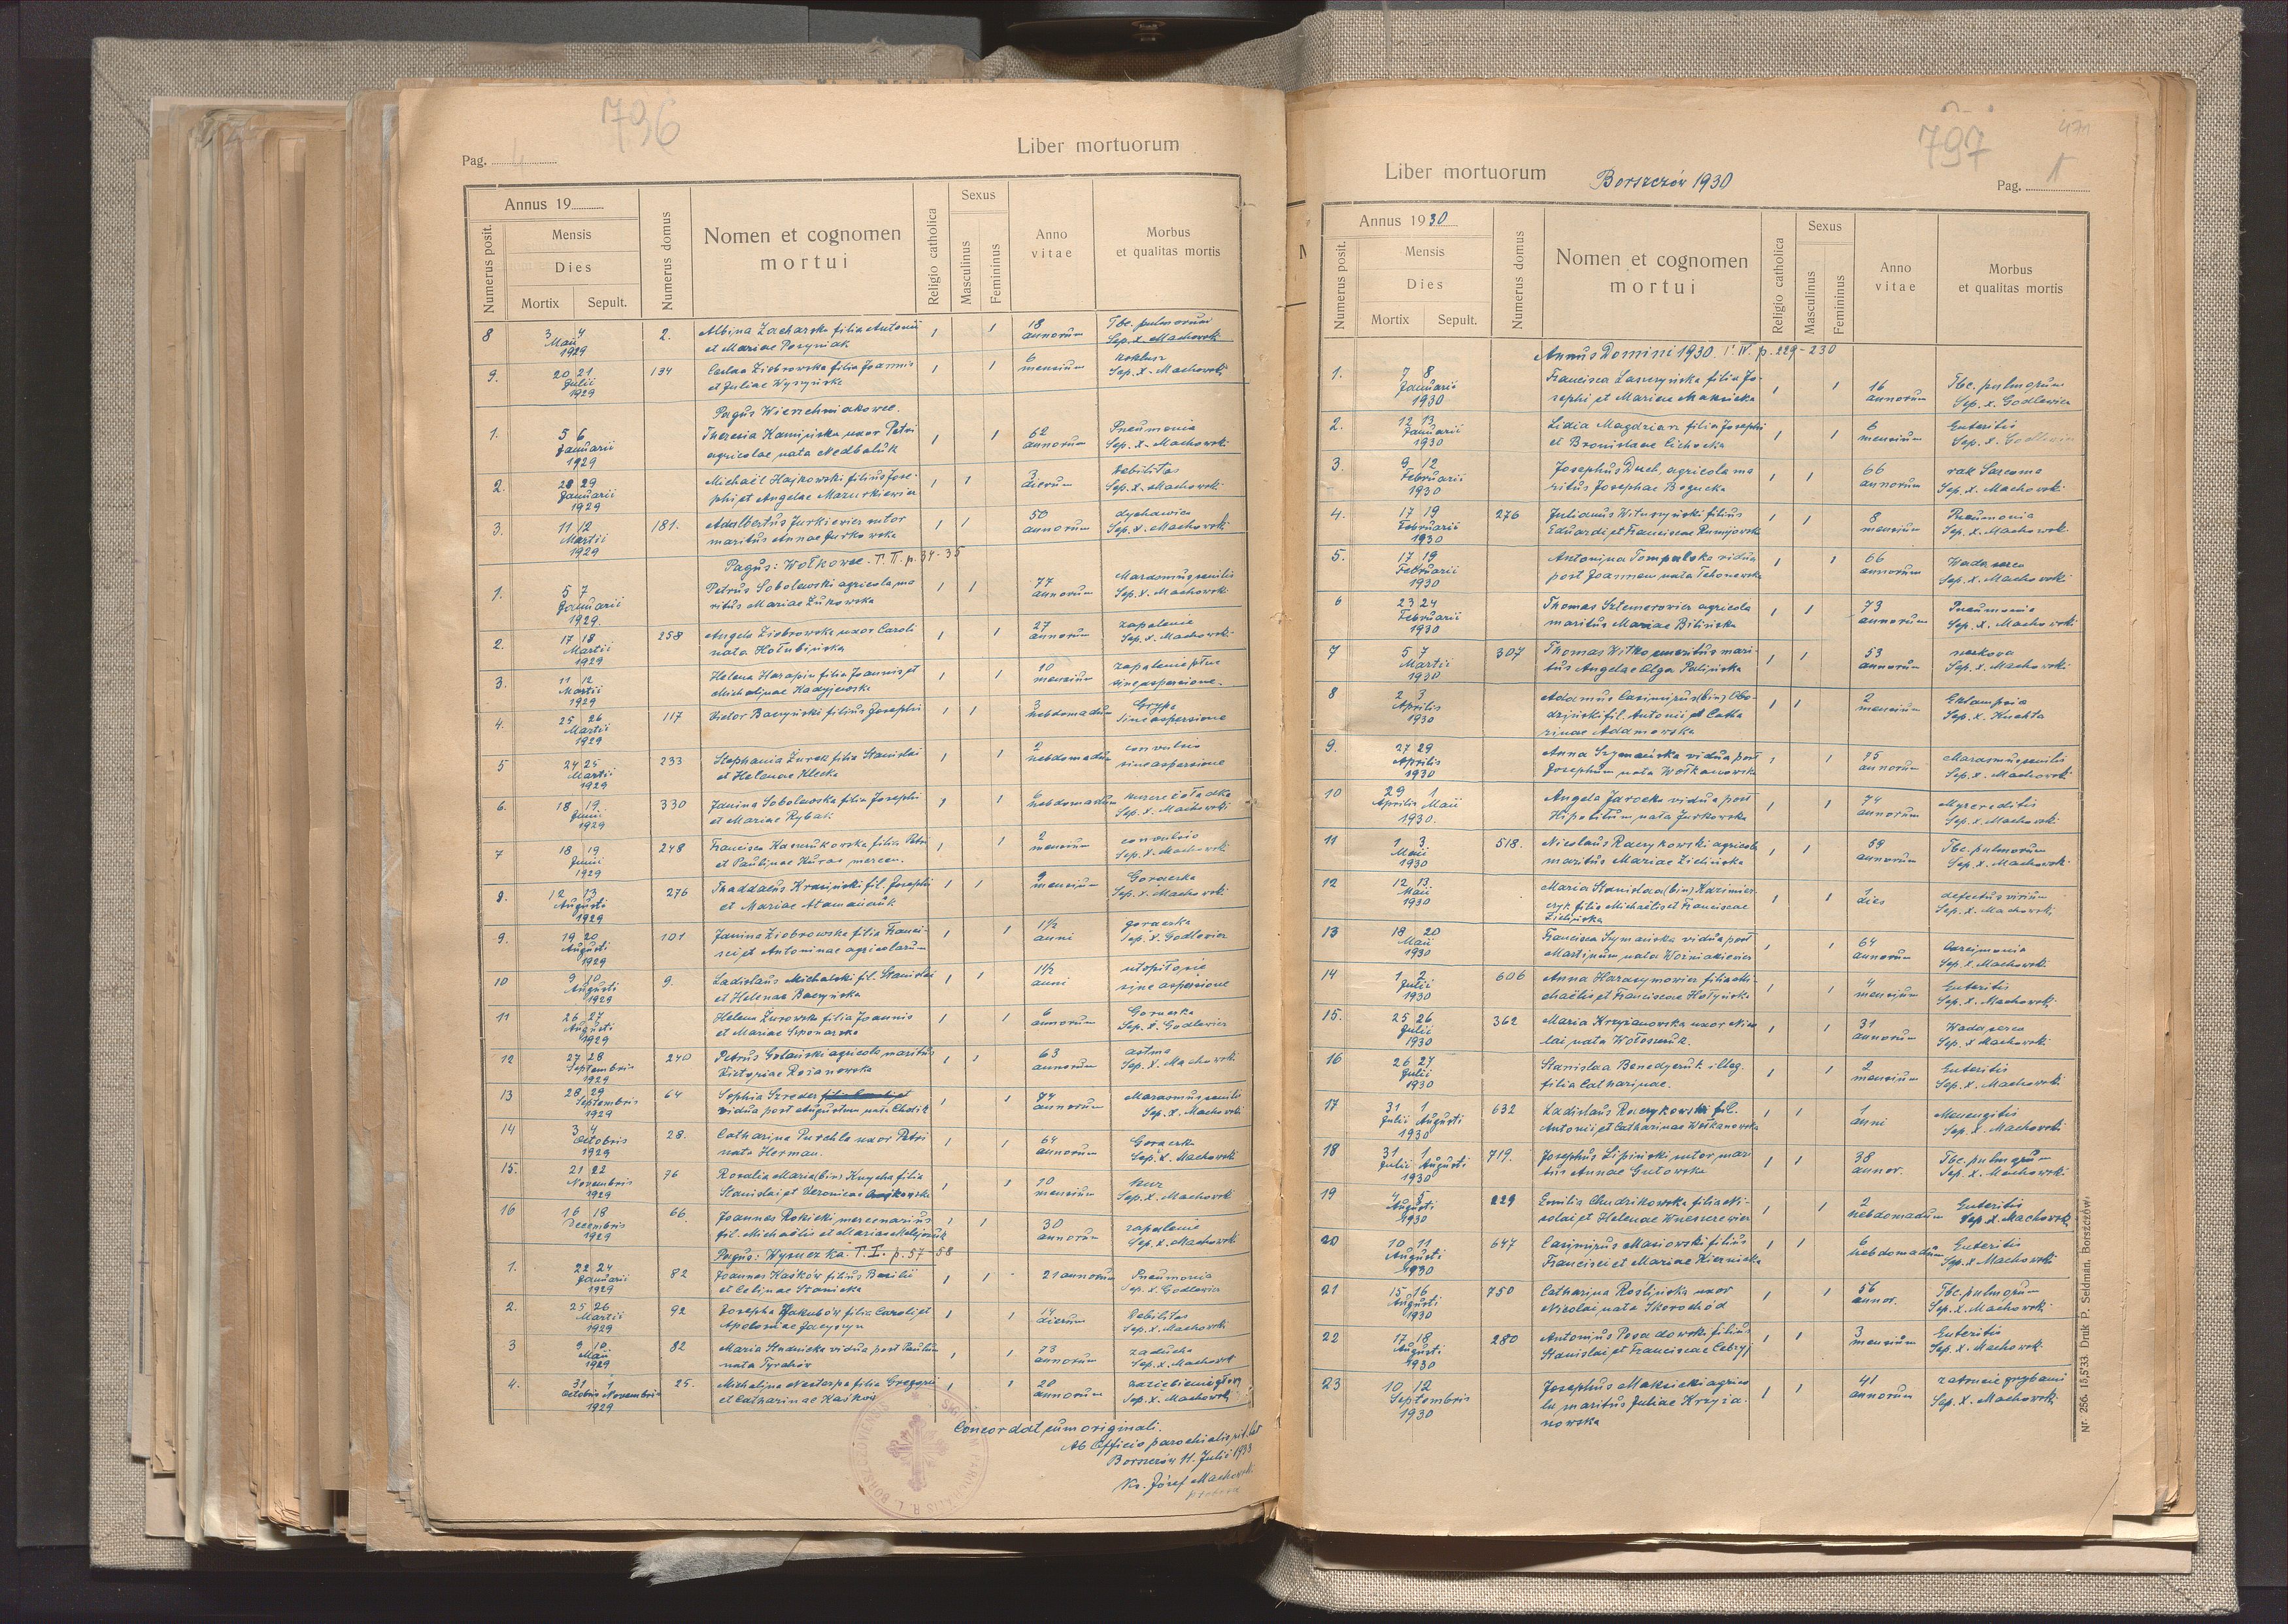 796
Pag. 4
Liber mortuorum
Annus 19
Numerus posit.
Mensis
Dies
Mortix Sepult.
Numerus domus
Nomen et cognomen
mortui
Religio catholica
Sexus
Masculinus
Femininus
Anno
vitae
Morbus
et qualitas mortis
8 3 4 Maii 1929 2. Albina Zacharska filia Antonii 1 1 18 annorum Tbc. pulmorum
et Mariae Sep. x. Machowski
9. 20 21 Julii 1929 134 Ziobrowska filia Joannis 1 1 6 mensium koklusz
et Juliae Wyszyńska Sep. x. Machowski
Pagus Wierzchniakowce.
1. 5 6 Januarii 1929 Theresia Kamińska uxor Petri 1 1 62 annorum Pneumonia
agricolae nata Nedbaluk Sep. x. Machowski
2. 28 29 Januarii 1929 Michaël Hajkowski filius Jose- 1 1 3 dierum Debilitas
phi et Angelae Mazurkiewicz Sep. x. Machowski
3. 11 12 Martii 1929 181. Adalbertus Jurkiewicz sutor 1 1 50 annorum dychawica
maritus Annae Jurkowska Sep. x. Machowski
Pagus: Wołkowce. T. II. p. 34-35
1. 5 7 Januarii 1929. Petrus Sobolewski agricola, ma 1 1 77 annorum Marasmus senilis
ritus Mariae Żukowska Sep. x. Machowski
2. 17 18 Martii 1929 258 Angela Ziobrowska uxor Caroli 1 1 27 annorum zapalenie
nata Hołubińska Sep. x. Machowski
3. 11 12 Martii 1929 Helena Harapin filia Joannis et 1 1 10 mensium zapalenie płuc
Michalinae Kadyjewska sine aspersione.
4. 25 26 Martii 1929 117 Victor Baczyński filius Josephi 1 1 3 hebdomadum Grypa
sine aspersione
5 24 25 Martii 1929 233 Stephania Żurek filia Stanislai 1 1 2 hebdomadum convulsio
et Helenae Klecka sine aspersione
6. 18 19 Junii 1929 330 Janina Sobolewska filia Josephi 1 1 6 hebdomadum kurcze żołądka
et Mariae Rybak Sep. x. Machowski
7 18 19 Junii 1929 248 Francisca filia Petri 1 1 2 mensium convulsio
et Paulinae Kuras mercen. Sep. x. Machowski
8. 12 13 Augusti 1929 276 Thaddaeus Krasiński fil. Josephi 1 1 9 mensium Gorączka
et Mariae Atamańczuk Sep. x. Machowski
9. 19 20 Augusti 1929 101 Janina Ziobrowska filia Franci- 1 1 1½ anni gorączka
sci et Antoninae agricolarum Sep. x. Godlewicz
10 9 10 Augusti 1929 9. Ladislaus Michalski fil. Stanislai 1 1 1½ anni utopił się
et Helenae Baczyńska sine aspersione
11 26 27 Augusti 1929 Helena Żurowska filia Joannis 1 1 6 annorum Gorączka
et Mariae Sep. x. Godlewicz
12 27 28 Septembris 1929 240 Petrus Golański agricola maritus 1 1 63 annorum astma
Victoriae Rojanowska Sep. x. Machowski
13 28 29 Septembris 1929 64 Sophia Szreder 1 1 74 annorum Marasmus senilis
vidua post Augustum nata Sep. x. Machowski
14 3 4 Octobris 1929 28. Catharina Purchla uxor Petri 1 1 64 annorum Gorączka
nata Herman. Sep. x. Machowski
15. 21 22 Novembris 1929 76 Rosalia Maria (bin) filia 1 1 10 mensium kur
Stanislai et Veronicae Sep. x. Machowski
16 16 18 Decembris 1929 66. Joannes Rokicki mercenarius 1 1 30 annorum zapalenie
fil. Michaëlis et Mariae Sep. x. Machowski
Pagus: Wysuczka. T. I. p. 57-58
1. 22 24 Januarii 1929 82 Joannes Kaśków filius Basilii 1 1 21 annorum Pneumonia
et Celinae Słonicka Sep. x. Godlewicz
2. 25 26 Martii 1929 92 Josepha Jakubów filia Caroli et 1 1 14 dierum Debilitas
Apoloniae Jaczyszyn Sep. x. Machowski
3 9 10 Maii 1929 82 Maria Studnicka vidua post Paulum 1 1 73 annorum zaducha
nata Tyrahór Sep. x. Machowski
4. 31 1 Octobris Novembris 1929 25. Michalina filia Gregorii 1 1 20 annorum
et Catharinae Kaśków Sep. x. Machowski
Concordat cum originali.
Ab Officio parochiali rit. lat.
Borszczów 11. Julii 1933
Ks. Józef Machowski
797
471
Liber mortuorum Borszczów 1930
Pag. 1
Annus 1930
Numerus posit.
Mensis
Dies
Mortix Sepult.
Numerus domus
Nomen et cognomen
mortui
Religio catholica
Sexus
Masculinus
Femininus
Anno
vitae
Morbus
et qualitas mortis
Annus Domini 1930. T. IV. p. 229-230
1. 7 8 Januarii 1930 Francisca Laszczyńska filia Jo- 1 1 16 annorum Tbc. pulmorum
sephi et Mariae Makiecka Sep. x. Godlewicz
2. 12 13 Januarii 1930 Lidia Magdzian filia Josephi 1 1 6 mensium Enteritis
et Bronislavae Cichocka Sep. x. Godlewicz
3. 9 12 Februarii 1930 Josephus Duch, agricola ma 1 1 66 annorum rak Sarcoma
ritus Josephae Bogucka Sep. x. Machowski
4. 17 19 Februarii 1930 276 Julianus Wituszyński filius 1 1 8 mensium Pneumonia
Eduardi et Franciscae Sep. x. Machowski
5. 17 19 Februarii 1930 Antonina Tompalska vidua 1 1 66 annorum Wada serca
post Joannem nata Sep. x. Machowski
6 23 24 Februarii 1930 Thomas Szlemerowicz agricola 1 1 73 annorum Pneumonia
maritus Mariae Bilińska Sep. x. Machowski
7 5 7 Martii 1930 307 Thomas Witko emeritus mari 1 1 53 annorum nerkowa
tus Angelae Olga Palińska Sep. x. Machowski
8 2 3 Aprilis 1930 Adamus Casimirus (bin) Obo- 1 1 2 mensium Eklampsia
dziński fil. Antonii et Catha Sep. x. Kuchta
rinae Adamowska
9. 27 29 Aprilis 1930 Anna Szymańska vidua post 1 1 75 annorum Marasmus senilis
Josephum nata Wołkanowska Sep. x. Machowski
10 29 1 Aprilis Maii 1930. Angela Jarocka vidua post 1 1 74 annorum Myocarditis
Hipolitum nata Jurkowska Sep. x. Machowski
11 1 3 Maii 1930 518. Nicolaus Raczykowski agricola 1 1 59 annorum Tbc. pulmorum
maritus Mariae Zielińska Sep. x. Machowski
12 12 13 Maii 1930 Maria Stanislaa (bin) Kazimier 1 1 1 dies defectus virium
czyk filia Michaëlis et Franciscae Sep. x. Machowski
Zielińska
13 18 20 Maii 1930 Francisca Szymańska vidua post 1 1 64 annorum
Martinum nata Woźniakiewicz Sep. x. Machowski
14 1 2 Julii 1930 606 Anna Harasymowicz filia Mi- 1 1 4 mensium Enteritis
chaëlis et Franciscae Hołyńska Sep. x. Machowski
15. 25 26 Julii 1930 362 Maria Krzyżanowska uxor Nico 1 1 31 annorum Wada serca
lai nata Wołoszczuk. Sep. x Machowski
16 26 27 Julii 1930 Stanislaa Benedyczuk illeg. 1 1 2 mensium Enteritis
filia Catharinae. Sep. x. Machowski
17 31 1 Julii Augusti 1930 632 Ladislaus Raczykowski fil. 1 1 1 anni Menengitis
Antonii et Catharinae Wołkanowska Sep. x. Machowski
18 31 1 Julii Augusti 1930 719. Josephus Lipiński sutor, mari 1 1 38 annor. Tbc. pulmorum
tus Annae Gutowska Sep. x. Machowski
19 4 5 Augusti 1930 229 Emilia Chudzikowska filia Ni- 1 1 2 hebdomadum Enteritis
colai et Helenae Sep. x. Machowski
20 10 11 Augusti 1930 647 Casimirus Masiowski filius 1 1 6 hebdomadum Enteritis
Francisci et Mariae Kiernicka Sep. x. Machowski
21 15 16 Augusti 1930 750 Catharina Roślińska uxor 1 1 56 annor. Tbc. pulmorum
Nicolai nata Skorochód Sep. x. Machowski
22 17 18 Augusti 1930 280 Antonius Posadowski filius 1 1 3 mensium Enteritis
Stanislai et Franciscae Cebryj Sep. x. Machowski
23 10 12 Septembris 1930 Josephus Makiecki agrico 1 1 41 annorum zatrucie grzybami
la maritus Juliae Krzyża- Sep. x. Machowski
nowska
Nr. 256. 15,5'33. Druk P. Seldman, Borszczów.